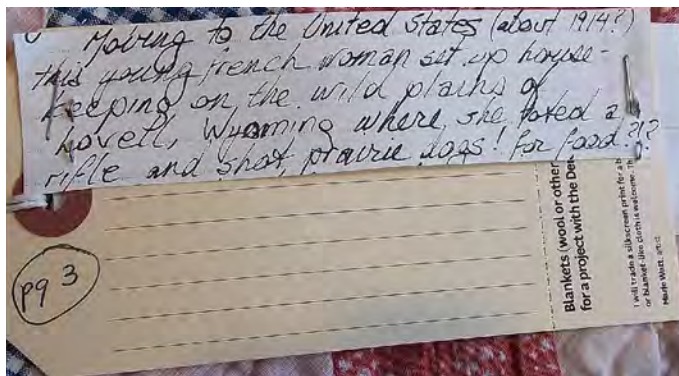 Moving to the United States (about 1914?)
this young french woman set up house-
keeping on the wild plains of
Lovell, Wyoming where she toted a
rifle and shot prairie dogs! for food?!?
pg 3
Blankets (wool or other
for a project with the De
I will trade a silkscreen print for a b
or blanket-like cloth is welcome. Th
Marie Watt, artist